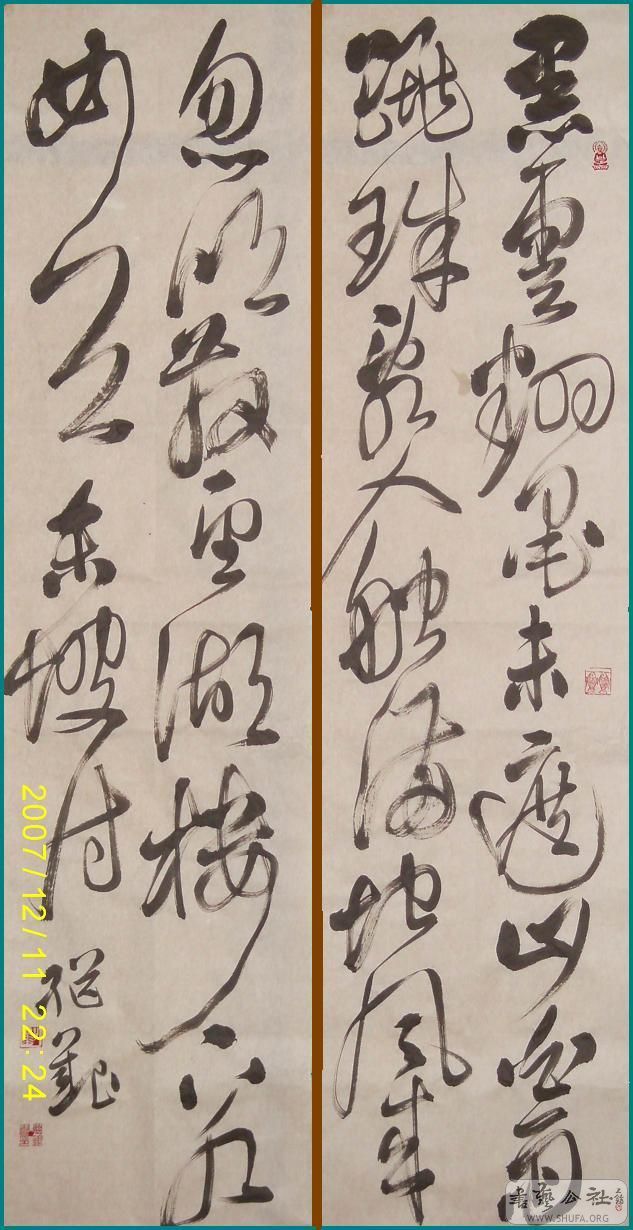 黑雲翻墨未遮山白雨
跳珠亂入船滿地風来
忽吹散望湖樓下水
如天
東坡詩
2007/12/11 22:24
書藝公社
WWW.SHUFA.ORG